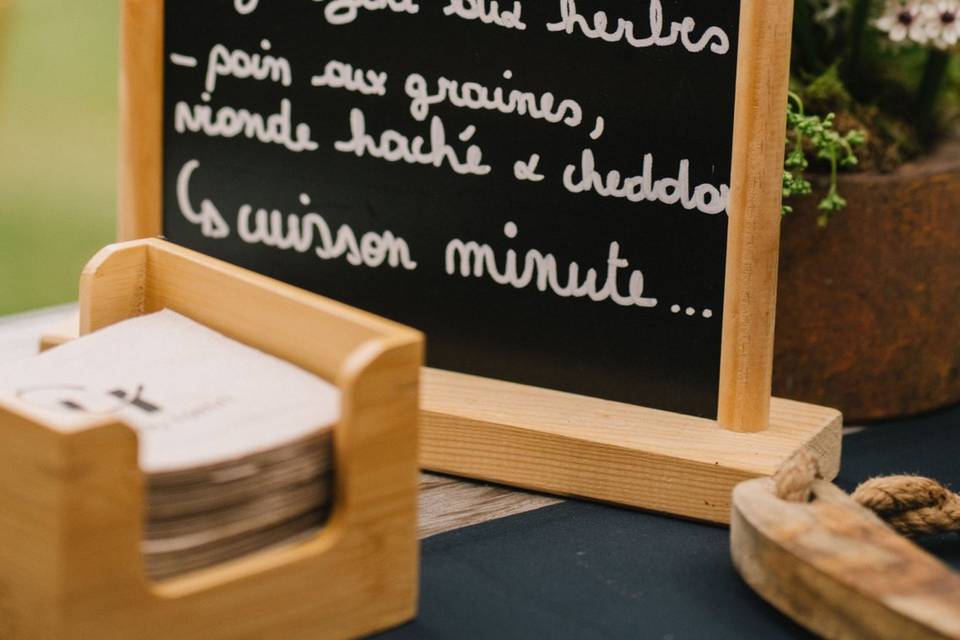 aux herbes
- pain aux graines,
viande haché & cheddar
Gs cuisson minute...